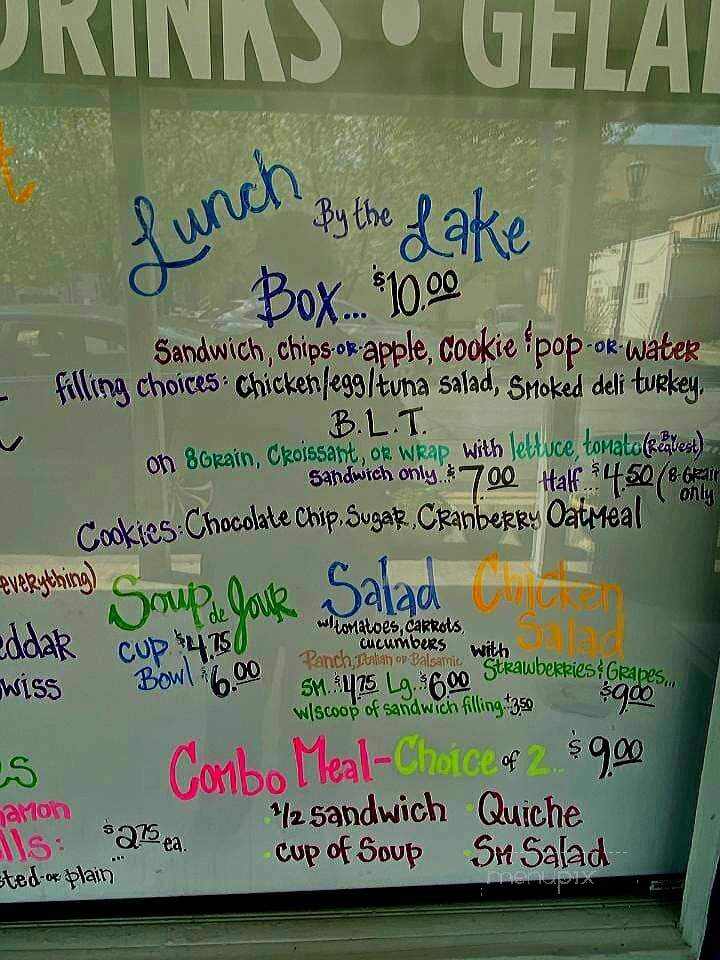 DRINKS • GELA
Lunch By the Lake
Box... $10.00
Sandwich, chips-or-apple, cookie & pop-or-water
filling choices: Chicken/egg/tuna salad, Smoked deli turkey,
B.L.T.
on 8Grain, Croissant, or wrap with lettuce, tomato (By Request)
Sandwich only..$7.00 Half..$4.50 (8-Grain only
Cookies: Chocolate Chip, Sugar, Cranberry Oatmeal
everything)
eddar
wiss
Soup de Jour
cup $4.75
Bowl $6.00
Salad
w/tomatoes, carrots,
cucumbers
Ranch, Italian or Balsamic
SM.$4.75 Lg.$6.00
w/scoop of sandwich filling.+3.50
Chicken
Salad
with
Strawberries & Grapes...
$9.00
Combo Meal-Choice of 2... $9.00
1/2 sandwich · Quiche
cup of Soup · SM Salad
es
namon
lls: $2.75 ea.
...
sted-or plain
menupix